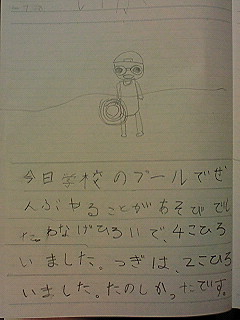 今日学校のプールでぜ
んぶやることがあそびでし
た。わなげひろいで、4こひろ
いました。つぎは、2こひろ
いました。たのしかったです。